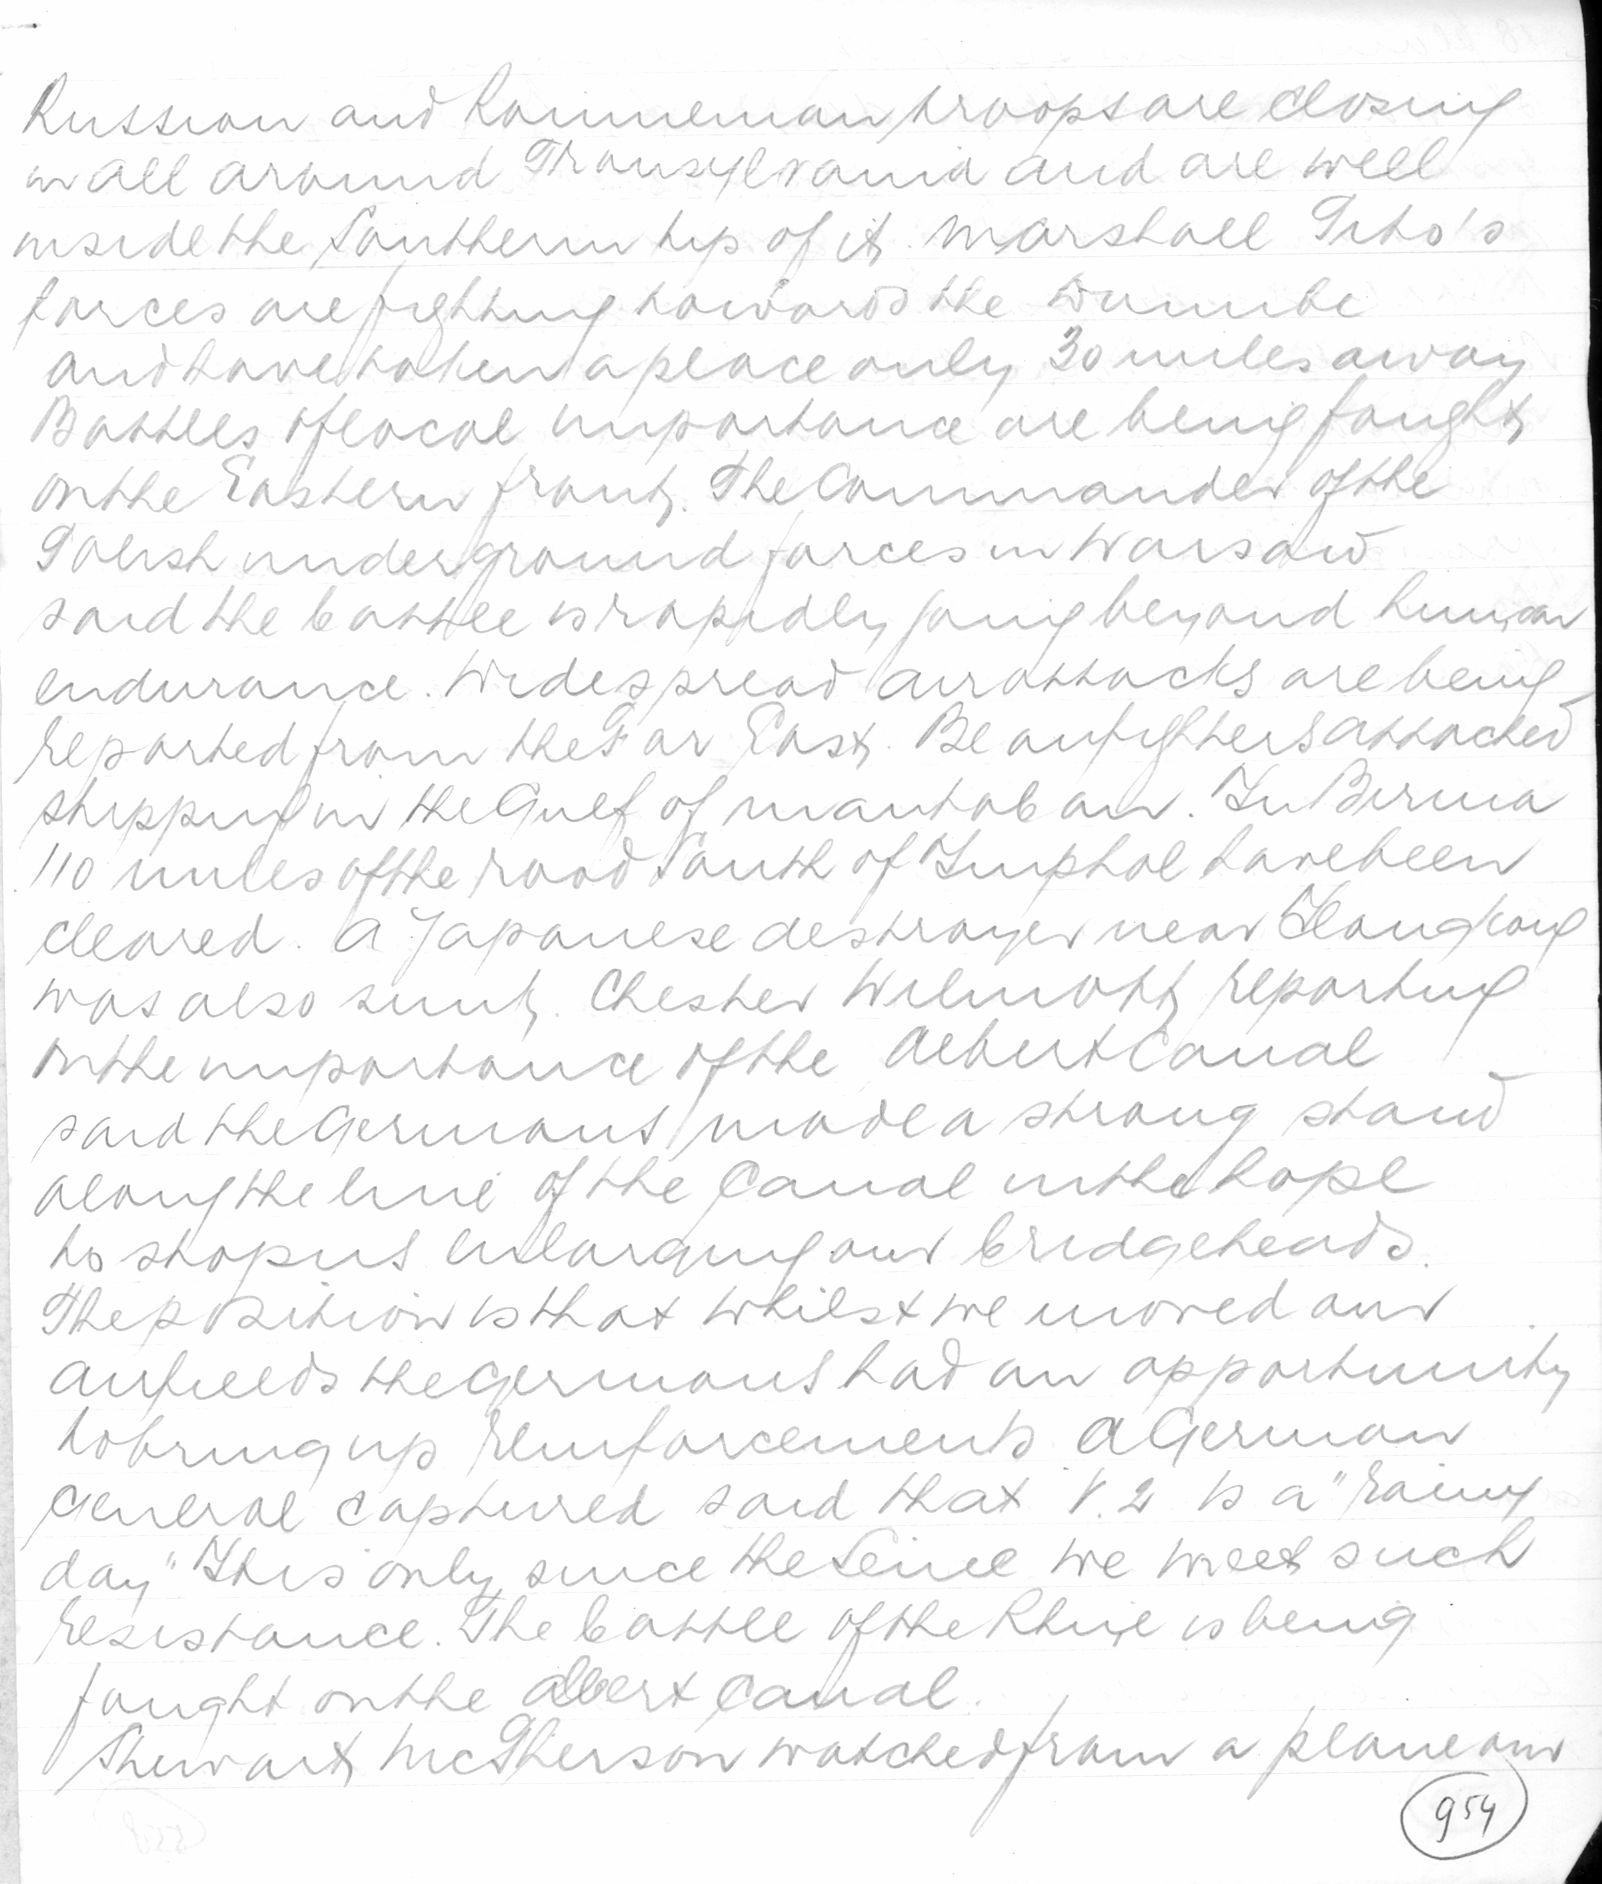 Russian and Roumenian troops are closing
in all around Transylvania and are well
inside the Southern tip of it. Marshall Tito's
forces are fighting towards the Danube
and have taken a place only 30 miles away
Battles of local importance are being fought
on the Eastern front. The Commander of the
Polish underground forces in Warsaw
said the battle is rapidly going beyond human
endurance. Widespread air attacks are being
reported from the Far East. Beaufighters attacked
shipping in the Gulf of Martaban. In Birma
110 miles of the road South of Imphal have been
cleared. A Japanese destroyer near Hongkong
was also sunk. Chester Wilmott reporting
on the importance of the Albert Canal
said the Germans made a strong stand
along the line of the Canal in the hope
to stop us enlarging our bridgeheads.
The position is that whilst we moved our
airfields the Germans had an opportunity
to bring up reinforcements. A German
General captured said that V.2 is a "rainy
day" It is only since the Seine we meet such
resistance. The battle of the Rhine is being
fought on the Albert Canal.
Stewart McPherson watched from a plane our
954